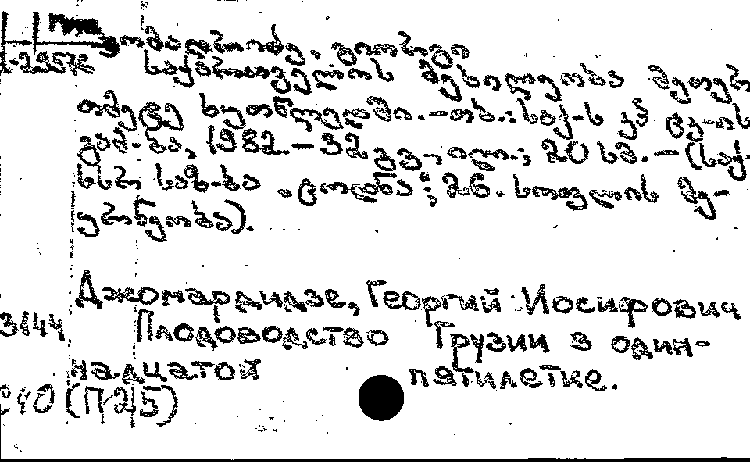 Груз.
ჯომარდიძე, გიორგი
1-22572 საქართველოს მეხილეობა მეთერ-
თმეტე ხუთწლედში. - თბ.: საქ-ს კპ ცკ-ის
გამ-ბა, 1982. - 32 გვ., ილ.; 20 სმ. - (საქ.
სსრ საზ-ბა „ცოდნა“; 26. სოფლის მე-
ურნეობა).
Джомардидзе, Георгий Иосифович
3144 Плодоводство Грузии в один-
надцатой пятилетке.
(П25)